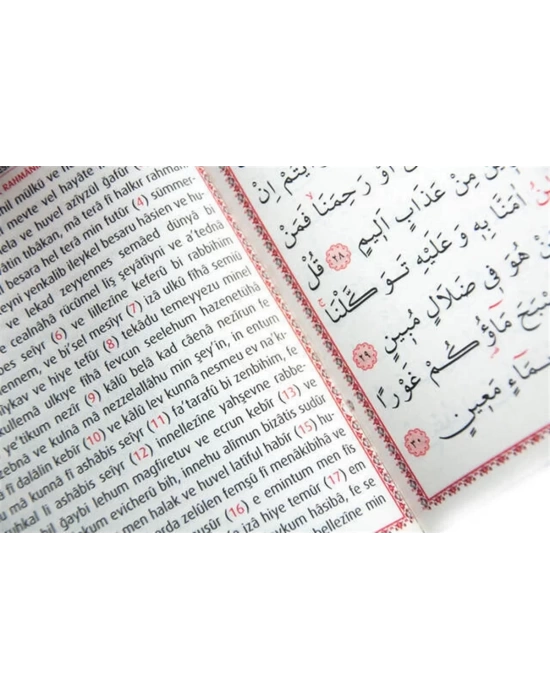 RAHMAN
mil mülkü ve
meyte vel hayâte
ela ve huvel azîyzül gafûr
vâtin tıbâkan, mâ terâ fî halkır rahmân
besara hel terâ min futûr (4) sümmer-
teyni yenkalib ileykel besaru hâsien ve hu-
ve lekad zeyyennes semâed dünyâ bi
e cealnâhâ rücûmel liş şeyâtiyni ve a'tednâ
bes seiyr (6) ve lillezîne keferû bi rabbihim
ennem, ve bi'sel mesîyr (7) izâ ulkû fîhâ semiû
ıykav ve hiye tefûr (8) tekâdu temeyyezu minel
kullemâ ulkıye fîhâ fevcun seelehum hazenetühâ
e'tikum nezîr (9) kâlû belâ kad câenâ nezîrun fe
zebnâ ve kulnâ mâ nezzelallâhu min şey'in, in entum
â fî dalâlin kebîr (10) ve kâlû lev kunnâ nesmeu ev na'k-
mâ kunnâ fî ashâbis seiyr (11) fa'terafû bi zenbihim, fe
uhkal li ashâbis seiyr (12) innellezîne yahşevne rabbe-
bil ğaybi lehum magfiretuv ve ecrun kebîr (13) ve
kum evicherû bih, innehu alîmun bizâtis sudûr
men halak ve huvel latîful habîr (15) hu-
arda zelûlen femşû fî menâkibihâ ve
uşûr (16) e emintum men fis
izâ hiye temûr (17) em
aykum hâsibâ, fe se
bellezîne min
اَوْ رَحِمَنَا فَمَنْ
مِنْ عَذَابٍ اَل۪يمٍ ﴿٢٨﴾ قُلْ
اٰمَنَّا بِه۪ وَعَلَيْهِ تَوَكَّلْنَا
هُوَ ف۪ي ضَلَالٍ مُب۪ينٍ ﴿٢٩﴾
مَٓاؤُ۬كُمْ غَوْرًا
مَع۪ينٍ ﴿٣٠﴾